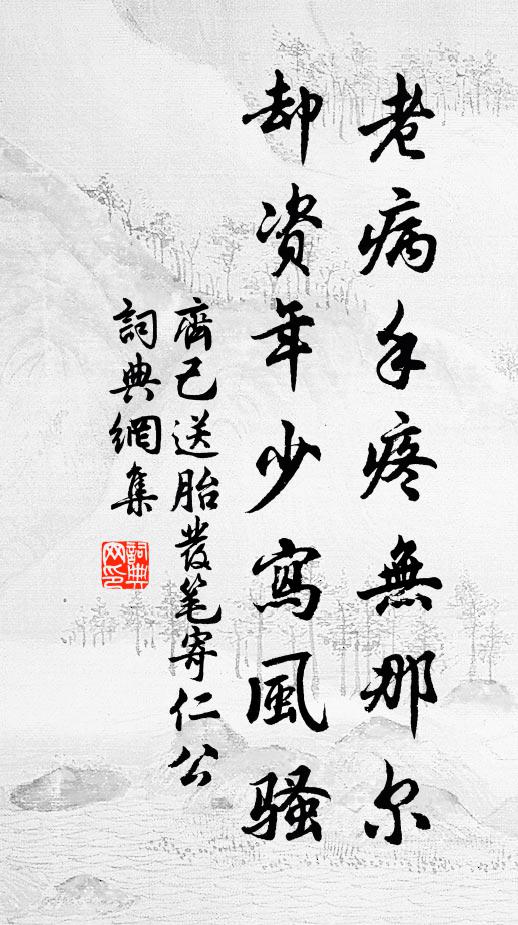 老病手疼無那尔
却資年少寫風騷
齊己送胎發笔寄仁公
詞典網集
詞典网印